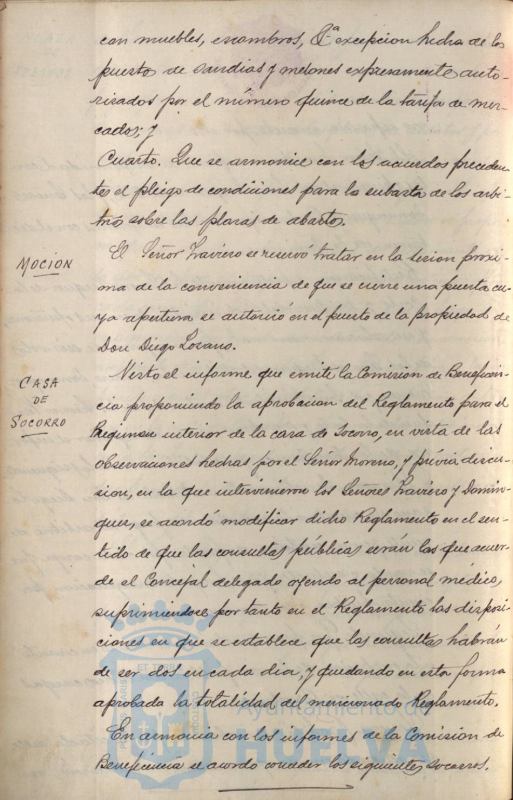 con muebles, escombros, &ª excepcion hecha de los
puestos de sandias y melones expresamente auto-
rizados por el número quince de la tarifa de mer-
cados; y
Cuarto. Que se armonice con los acuerdos preceden-
tes el pliego de condiciones para la subasta de los arbi-
trios sobre las plazas de abastos.
MOCION
El Señor Traviero se reservó tratar en la sesion proxi-
ma de la conveniencia de que se cierre una puerta cu-
ya apertura se autorizó en el puesto de la propiedad de
Don Diego Lozano.
CASA
DE
SOCORRO
Visto el informe que emite la Comision de Beneficen-
cia proponiendo la aprobacion del Reglamento para el
Regimen interior de la casa de Socorro, en vista de las
observaciones hechas por el Señor Moreno, y prévia discu-
sion, en la que intervinieron los Señores Traviero y Domin-
guez, se acordó modificar dicho Reglamento en el sen-
tido de que las consultas públicas serán las que acuer-
de el Concejal delegado oyendo al personal médico,
suprimiendose por tanto en el Reglamento las disposi-
ciones en que se establece que las consultas habrán
de ser dos en cada dia, y quedando en esta forma
aprobada la totalidad del mencionado Reglamento.
En armonia con los informes de la Comision de
Beneficencia se acordo conceder los siguientes socorros.
Ayuntamiento de
HUELVA